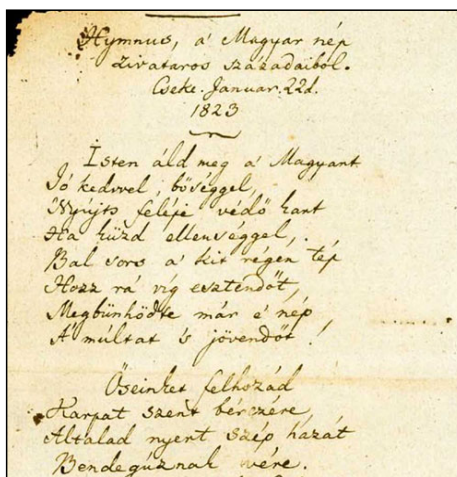 Hymnus, a' Magyar nép
zivataros századaiból.
Cseke. Januar. 22d.
1823
Isten áld meg a' Magyart
Jó kedvvel, bőséggel,
Nyújts feléje védő kart
Ha küzd ellenséggel,
Bal sors a' kit régen tép
Hozz rá víg esztendőt,
Megbűnhődte már e' nép
A' múltat 's jövendőt!
Őseinket felhozád
Kárpát szent bérczére,
Általad nyert szép hazát
Bendegúznak vére.